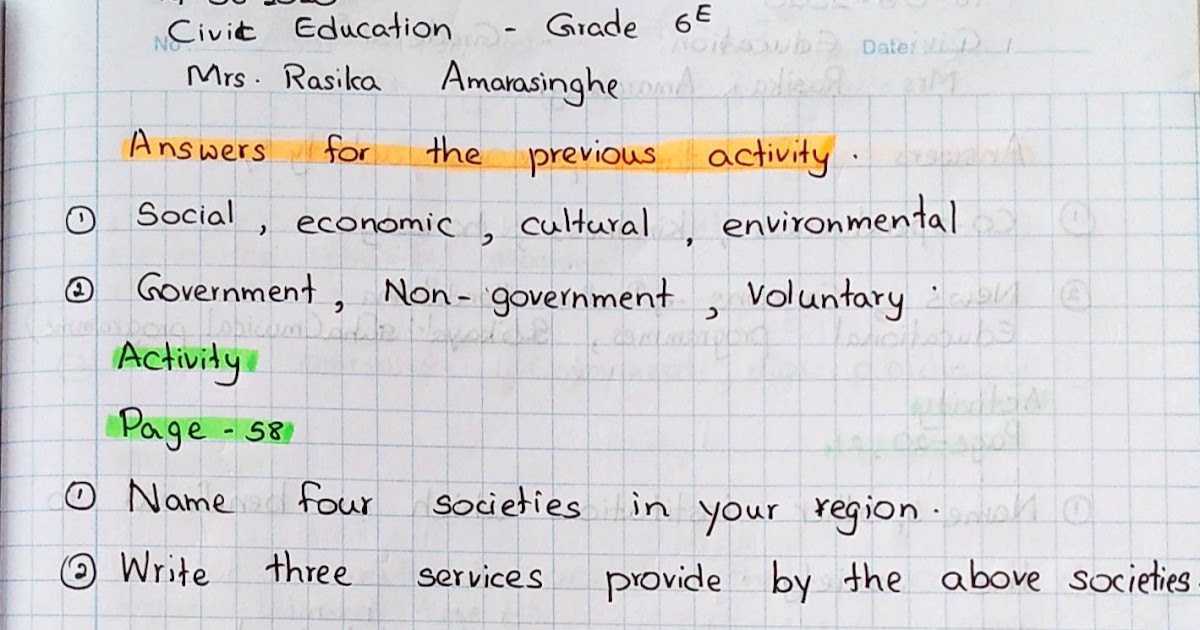 Civic Education - Grade 6E
No
Date:
Mrs. Rasika Amarasinghe
Answers for the previous activity.
① Social, economic, cultural, environmental
② Government, Non-government, Voluntary
Activity
Page - 58
① Name four societies in your region.
② Write three services provide by the above societies.